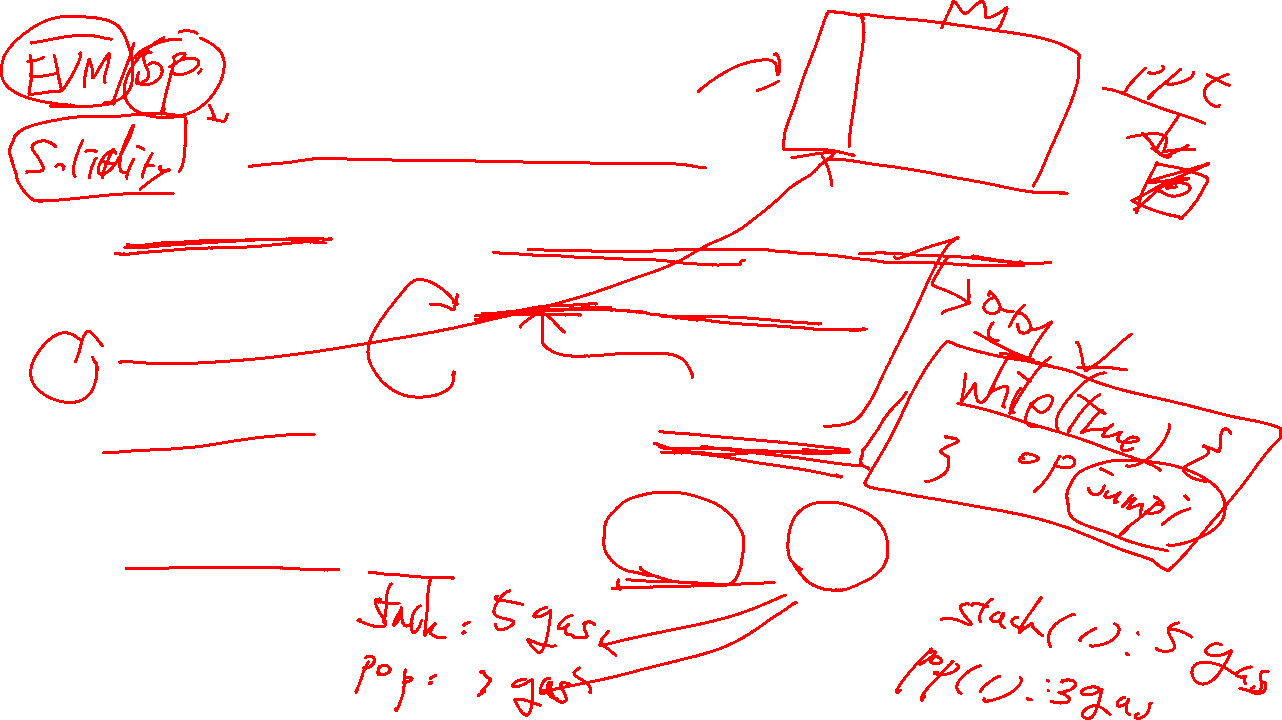 EVM
Solidity
ppt
while(true) {
} op jumpi
stack: 5 gas
pop: 3 gas
stack(1): 5 gas
pop(1): 3 gas